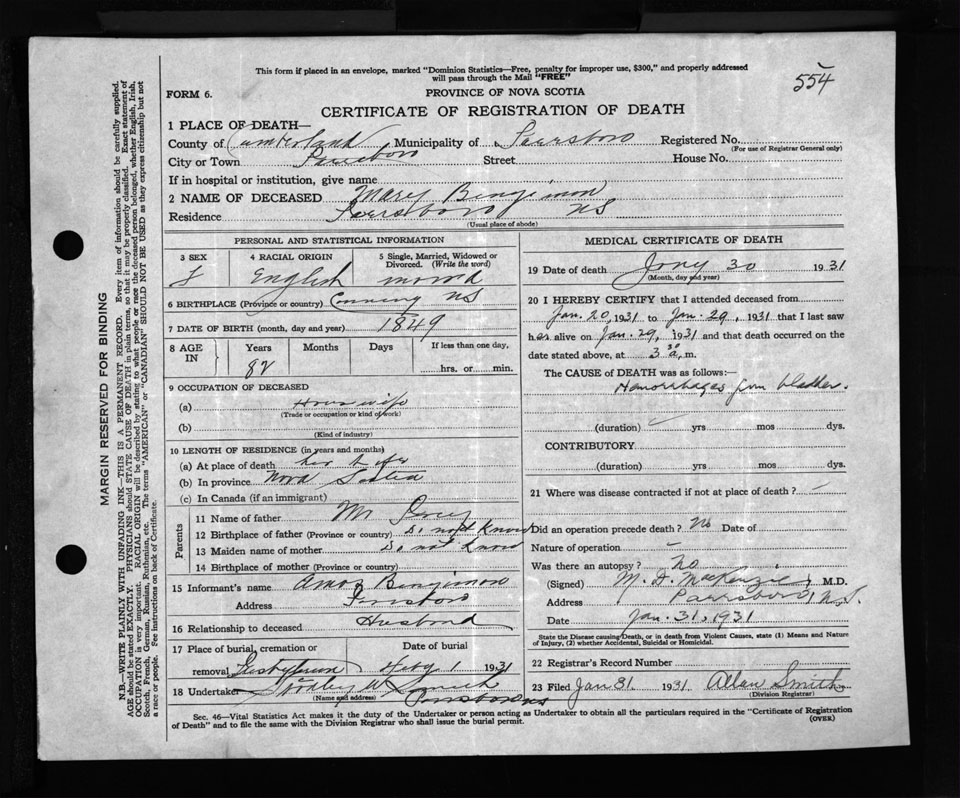 This form if placed in an envelope, marked "Dominion Statistics—Free, penalty for improper use, $300," and properly addressed
will pass through the Mail "FREE"
554
FORM 6.
PROVINCE OF NOVA SCOTIA
CERTIFICATE OF REGISTRATION OF DEATH
1 PLACE OF DEATH—
County of Cumberland Municipality of Parrsboro Registered No.
(For use of Registrar General only)
City or Town Parrsboro Street House No.
If in hospital or institution, give name
2 NAME OF DECEASED Mary Bengimon
Residence Parrsboro NS
(Usual place of abode)
PERSONAL AND STATISTICAL INFORMATION
3 SEX
4 RACIAL ORIGIN
5 Single, Married, Widowed or
Divorced. (Write the word)
F English
6 BIRTHPLACE (Province or country) NS
7 DATE OF BIRTH (month, day and year) 1849
8 AGE IN Years Months Days If less than one day,
82 hrs. or min.
9 OCCUPATION OF DECEASED
(a) House wife
(Trade or occupation or kind of work)
(b)
(Kind of industry)
10 LENGTH OF RESIDENCE (in years and months)
(a) At place of death her life
(b) In province Nova Scotia
(c) In Canada (if an immigrant)
Parents
11 Name of father Mr
12 Birthplace of father (Province or country) Do not know
13 Maiden name of mother Do not know
14 Birthplace of mother (Province or country)
15 Informant's name Amos Bengimon
Address
16 Relationship to deceased Husband
17 Place of burial, cremation or
removal
Date of burial
Feby 1 1931
18 Undertaker
(Name and address)
Parrsboro NS
MEDICAL CERTIFICATE OF DEATH
19 Date of death 30 1931
(Month, day and year)
20 I HEREBY CERTIFY that I attended deceased from
Jan. 20, 1931 to Jan. 29, 1931 that I last saw
her alive on Jan. 29, 1931 and that death occurred on the
date stated above, at 3 a.m.
The CAUSE of DEATH was as follows:—
Hemorrhages from bladder.
(duration) yrs mos dys.
CONTRIBUTORY
(duration) yrs mos dys.
21 Where was disease contracted if not at place of death? –
Did an operation precede death? No Date of
Nature of operation –
Was there an autopsy? No
(Signed) MacKenzie, M.D.
Address Parrsboro, N.S.
Date Jan. 31, 1931
State the Disease causing Death, or in death from Violent Causes, state (1) Means and Nature
of Injury, (2) whether Accidental, Suicidal or Homicidal.
22 Registrar's Record Number
23 Filed Jan 31 1931 Allan Smith
(Division Registrar)
Sec. 46—Vital Statistics Act makes it the duty of the Undertaker or person acting as Undertaker to obtain all the particulars required in the "Certificate of Registration
of Death" and to file the same with the Division Registrar who shall issue the burial permit.
(OVER)
MARGIN RESERVED FOR BINDING
N.B.—WRITE PLAINLY WITH UNFADING INK—THIS IS A PERMANENT RECORD. Every item of information should be carefully supplied.
AGE should be stated EXACTLY. PHYSICIANS should STATE CAUSE OF DEATH in plain terms, so that it may be properly classified. Exact statement of
OCCUPATION is very important. RACIAL ORIGIN will be described by stating to what people or race the deceased person belonged, whether English, Irish,
Scotch, French, German, Russian, Ruthenian, etc. The terms "AMERICAN" or "CANADIAN" SHOULD NOT BE USED as they express citizenship but not
a race or people. See instructions on back of Certificate.